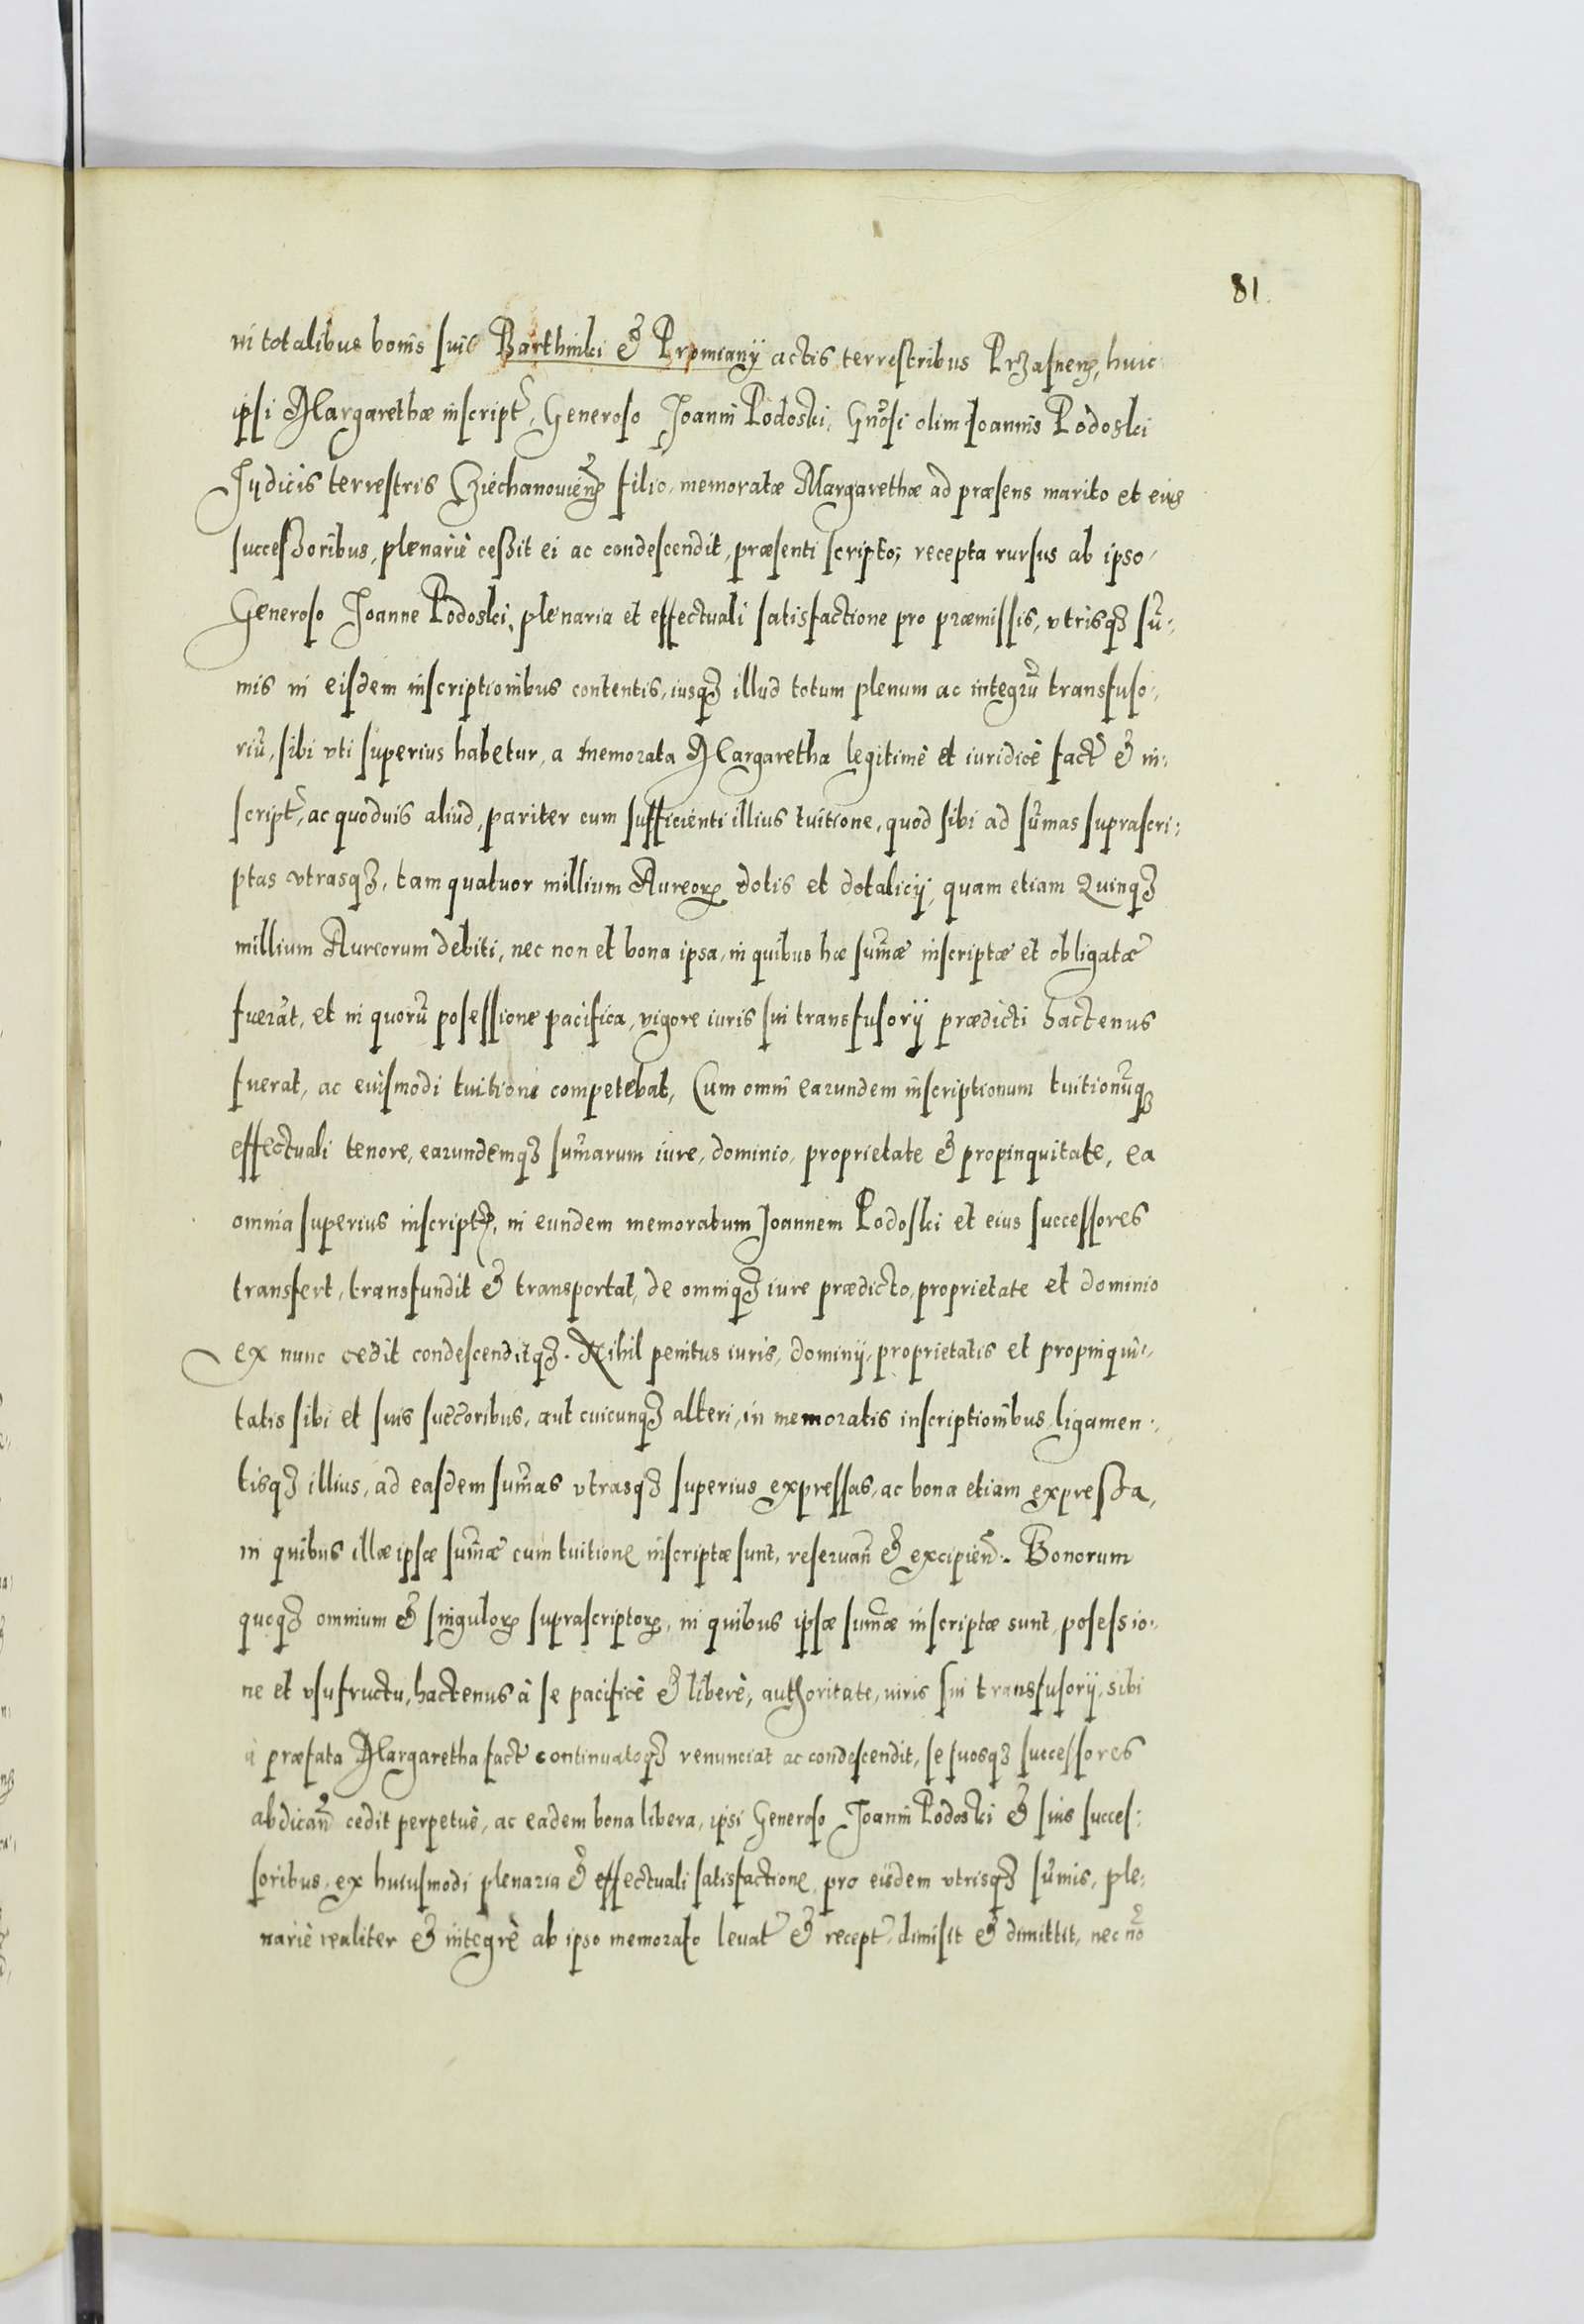 81.
in totalibus bonis suis Barthinki & Promiany actis terrestribus Przasnen, huic
ipsi Margarethæ inscript, Generoso Joanni Podoski, Gnosi olim Joannis Podoski
Judicis terrestris Cziechanouien filio, memoratæ Margarethæ ad præsens marito et eius
successoribus, plenariè ceßit ei ac condescendit, præsenti scripto; recepta rursus ab ipso
Generoso Joanne Podoski, plenaria et effectuali satisfactione pro præmissis, vtrisq3 sū:
mis in eisdem inscriptionibus contentis, iusq3 illud totum plenum ac integrū transfuso:
riū, sibi vti superius habetur, a memorata Margaretha legitimè et iuridicè fact & in:
script, ac quoduis aliud, pariter cum sufficienti illius tuitione, quod sibi ad sūmas suprascri:
ptas vtrasq3, tam quatuor millium Aureor dotis et dotalicij, quam etiam Quinq3
millium Aureorum debiti, nec non et bona ipsa, in quibus hæ sūmæ inscriptæ et obligatæ
fuerāt, et in quorū posessione pacifica, vigore iuris sui transfusorij prædicti hactenus
fuerat, ac euismodi tuitioni competebat, Cum omni earundem inscriptionum tuitionūq3
effectuali tenore, earundemq3 sūmarum iure, dominio, proprietate & propinquitate, ea
omnia superius inscript, in eundem memoratum Joannem Podoski et eius successores
transfert, transfundit & transportat, de omniq3 iure prædicto, proprietate et dominio
ex nunc cedit condescenditq3. Nihil penitus iuris, dominij, proprietatis et propinqui:
tatis sibi et suis succoribus, aut cuicunq3 alteri, in memoratis inscriptionibus, ligamen:
tisq3 illius, ad easdem sūmas vtrasq3 superius expressas, ac bona etiam expressa,
in quibus illæ ipsæ sūmæ cum tuitione inscriptæ sunt, reseruan & excipien. Bonorum
quoq3 omnium & singulor suprascriptor, in quibus ipsæ sūmæ inscriptæ sunt, posessio:
ne et vsufructu, hactenus à se pacificè & liberè, authoritate, iuris sui transfusorij, sibi
à præfata Margaretha fact continuatoq3 renunciat ac condescendit, se suosq3 successores
abdican cedit perpetuè, ac eadem bona libera, ipsi Generoso Joanni Podoski & suis succes:
soribus, ex huiusmodi plenaria & effectuali satisfactione, pro eisdem vtrisq3 sūmis, ple:
nariè realiter & integrè ab ipso memorato leuat & recept, dimisit & dimittit, nec nō